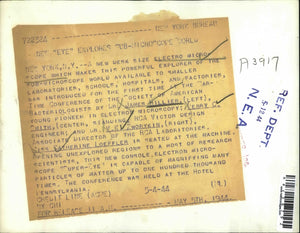 NEW YORK BUREAU
722324
"EYE" EXPLORES SUB-MICROSCOPE WORLD
NEW YORK, N.Y.--A NEW DESK SIZE ELECTRON MICRO-
SCOPE WHICH MAKES THIS POWERFUL EXPLORER OF THE
SUB-MICROSCOPE WORLD AVAILABLE TO SMALLER
LABORATORIES, SCHOOLS, HOSPITALS, AND FACTORIES,
WAS INTRODUCED FOR THE FIRST TIME AT THE
CONFERENCE OF THE SOCIETY OF AMERICAN
BACTERIOLOGISTS BY JAMES HILLIER, (LEFT),
YOUNG PIONEER IN ELECTRON MICROSCOPY; PERRY C.
SMITH, (CENTER, STANDING), RCA VICTOR DESIGN
ENGINEER; ZWORYKIN, (RIGHT),
ASSOCIATE DIRECTOR OF THE RCA LABORATORIES.
MISS KATHERINE DOEFFLER IS SEATED AT THE MACHINE.
OPENING UNEXPLORED REGIONS TO A HOST OF RESEARCH
SCIENTISTS, THIS NEW CONSOLE ELECTRON MICRO-
SCOPE "SUPER-EYE" IS CAPABLE OF MAGNIFYING MANY
PARTICLES OF MATTER UP TO ONE HUNDRED THOUSAND
TIMES. THE CONFERENCE WAS HELD AT THE HOTEL
PENNSYLVANIA.
CREDIT LINE (ACME) 5-4-44
MAY 5TH, 1944
A3917
REF. DEPT.
5-12-44
N.E.A.